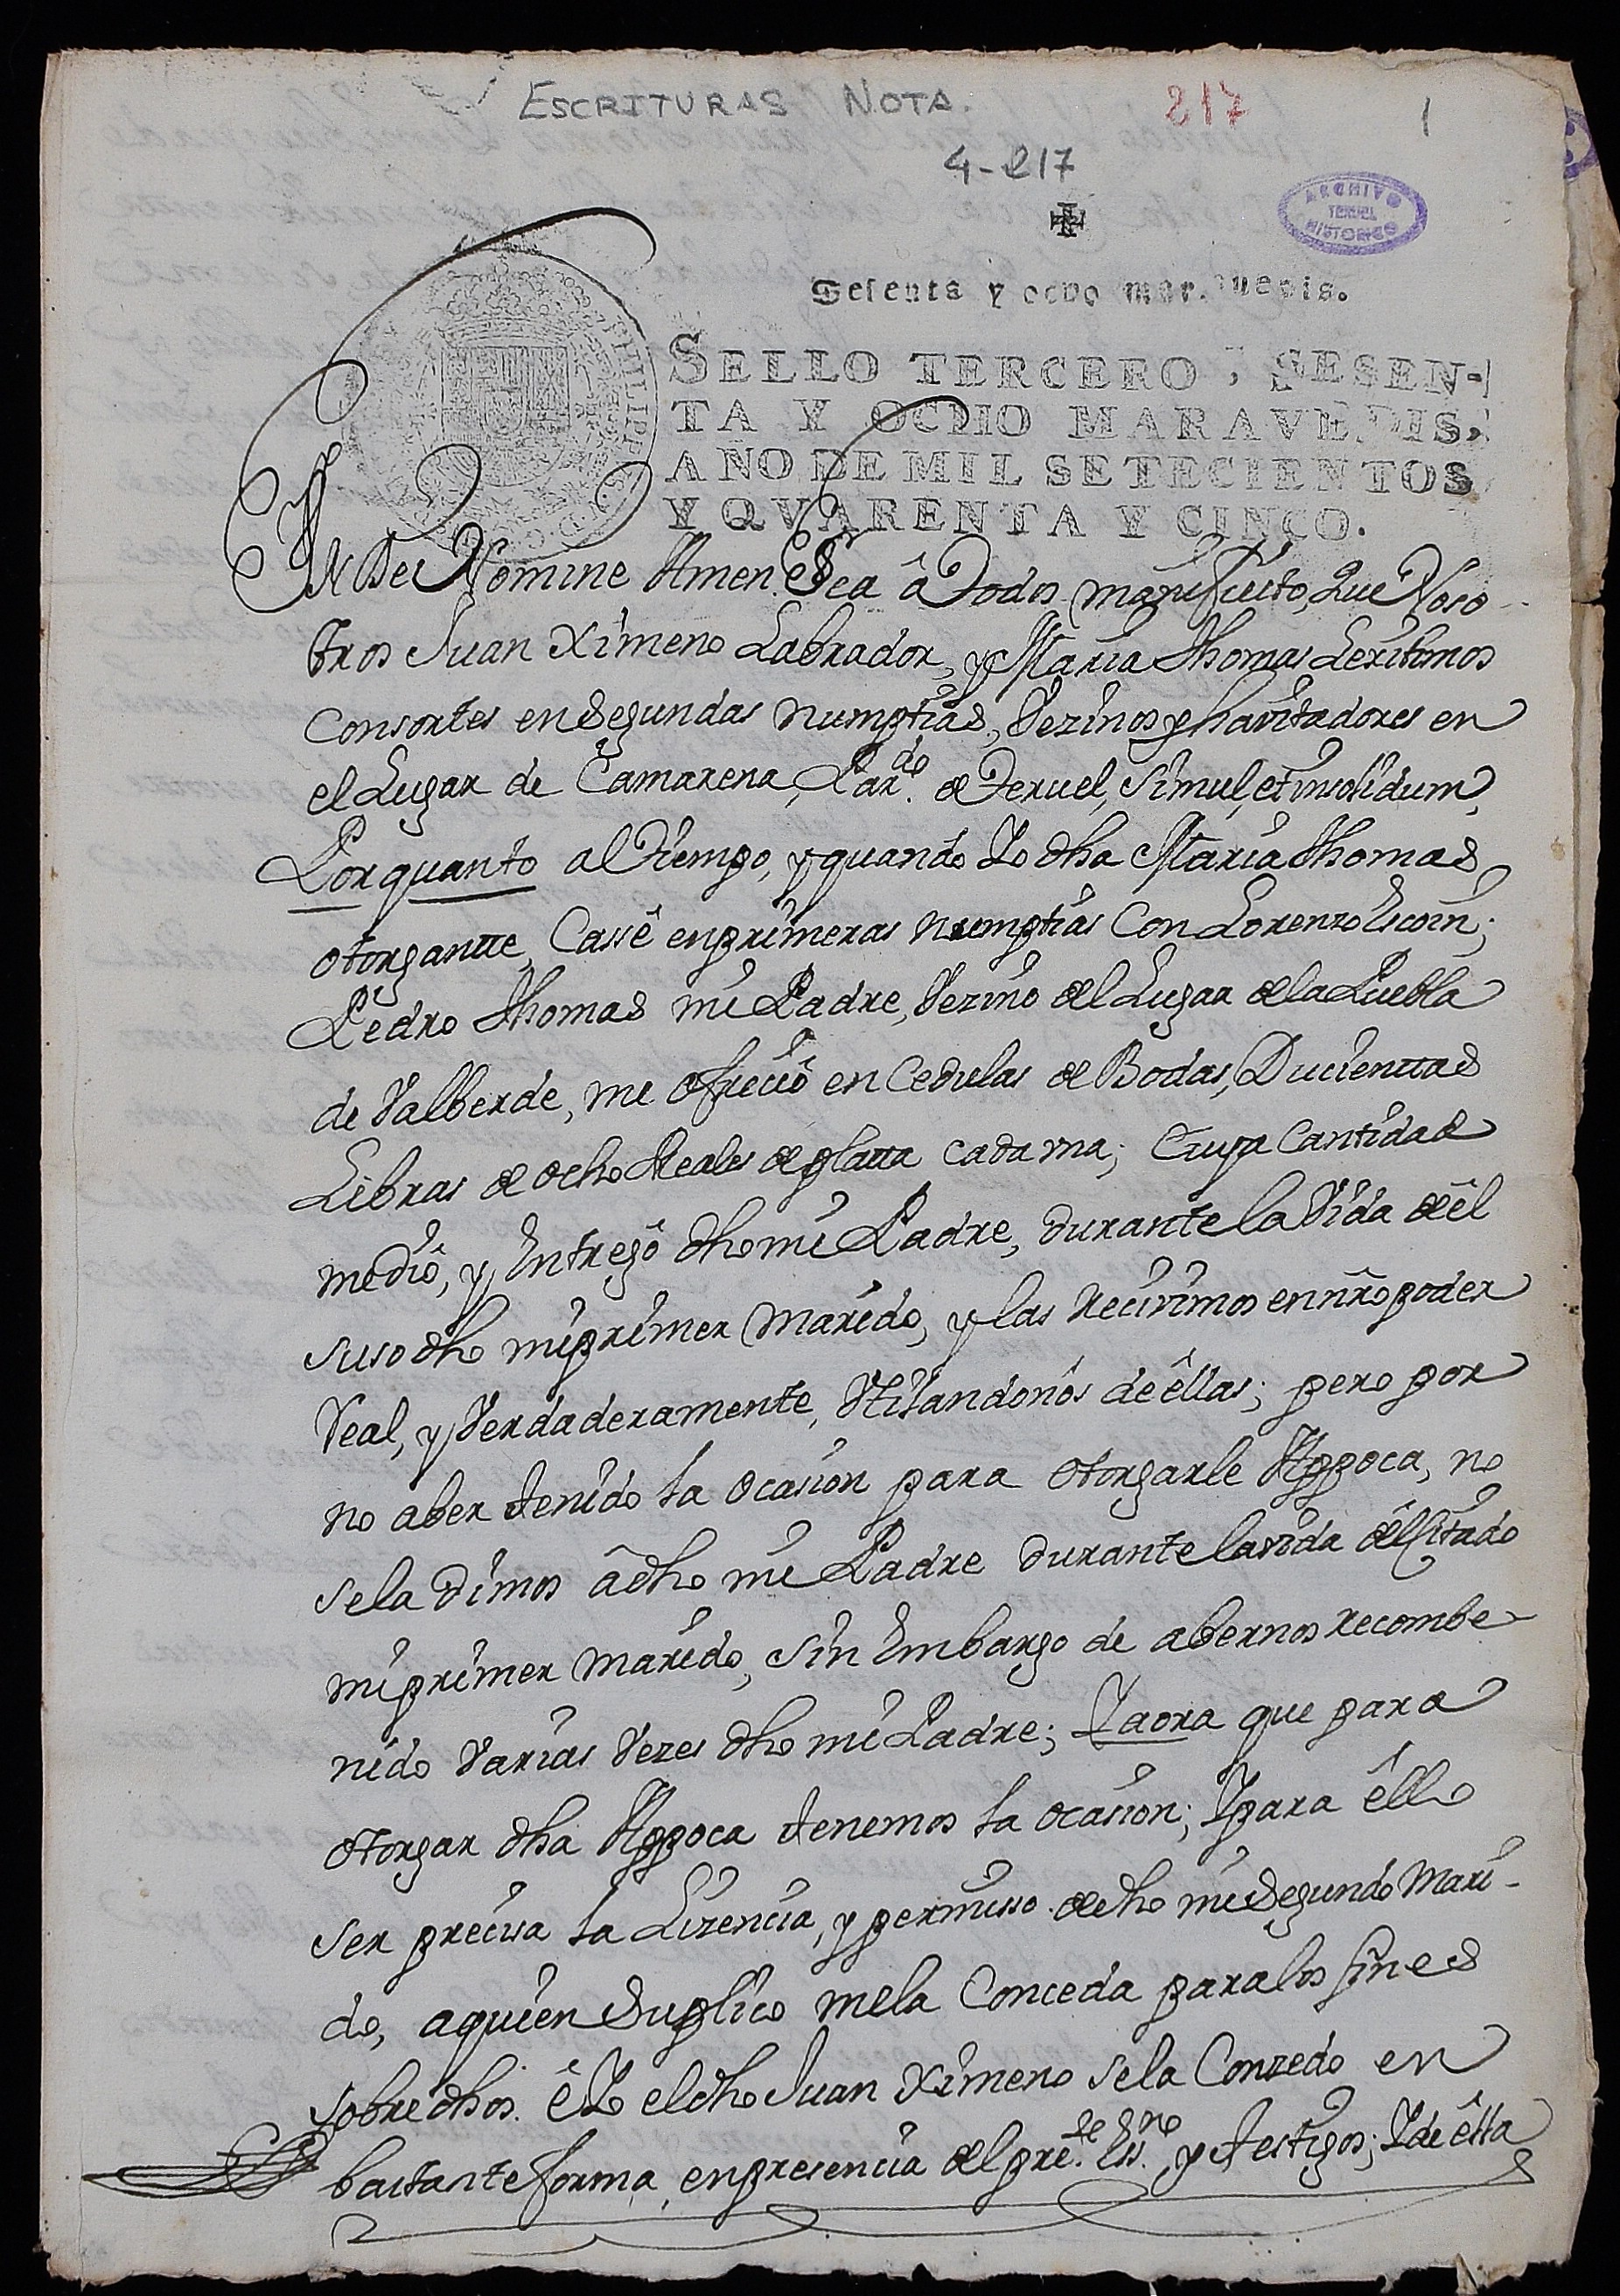 ESCRITURAS NOTA.
217
1
4-217
ARCHIVO
TERUEL
HISTORICO
Sesenta y ocho maravedis.
SELLO TERCERO, SESEN-
TA Y OCHO MARAVEDIS,
AÑO DE MIL SETECIENTOS
Y QVARENTA Y CINCO.
PHILIPP
In Dei Nomine Amen. Sea â Todos manifiesto, Que Noso
tros Juan Ximeno Labrador, y Maria Thomas Lexitimos
Consortes en Segundas numptias, Vezinos y havitadores en
el Lugar de Camarena, Par.do de Teruel, Simul, et insolidum,
Porquanto al Tiempo, y quando Yo dha Maria Thomas
otorgantte, Cassê en primeras numptias Con Lorenzo Escoin;
Pedro Thomas mi Padre, Vezino del Lugar dela Puebla
de Valberde, me ofreciô en Cedulas de Bodas, Ducienttas
Libras de ocho Reales de platta cada vna; Cuya Cantidad
mediô, y Entregô dho mi Padre, durante la Vida deêl
suso dho mi primer Marido, y las recivimos en nr̃o poder
Real, y Verdaderamente, Vtilandonós de êllas; pero por
no aber tenido la ocasion para otorgarle Appoca, no
se la dimos âdho mi Padre durante la vida dêl Citado
mi primer Marido, sin Embargo de abernos recombe-
nido Varias Vezes dho mi Padre; Yaora que para
otorgar dha Appoca tenemos la ocasion; Ypara êllo
ser precisa la Lizencia, y permisso de dho mi Segundo Mari-
do, aquien Suplico mela Conceda para los fines
sobredhos. êYo el dho Juan Ximeno se la Conzedo en
bastante forma, en presencia del pre.te Ess.no y testigos; Y de êlla